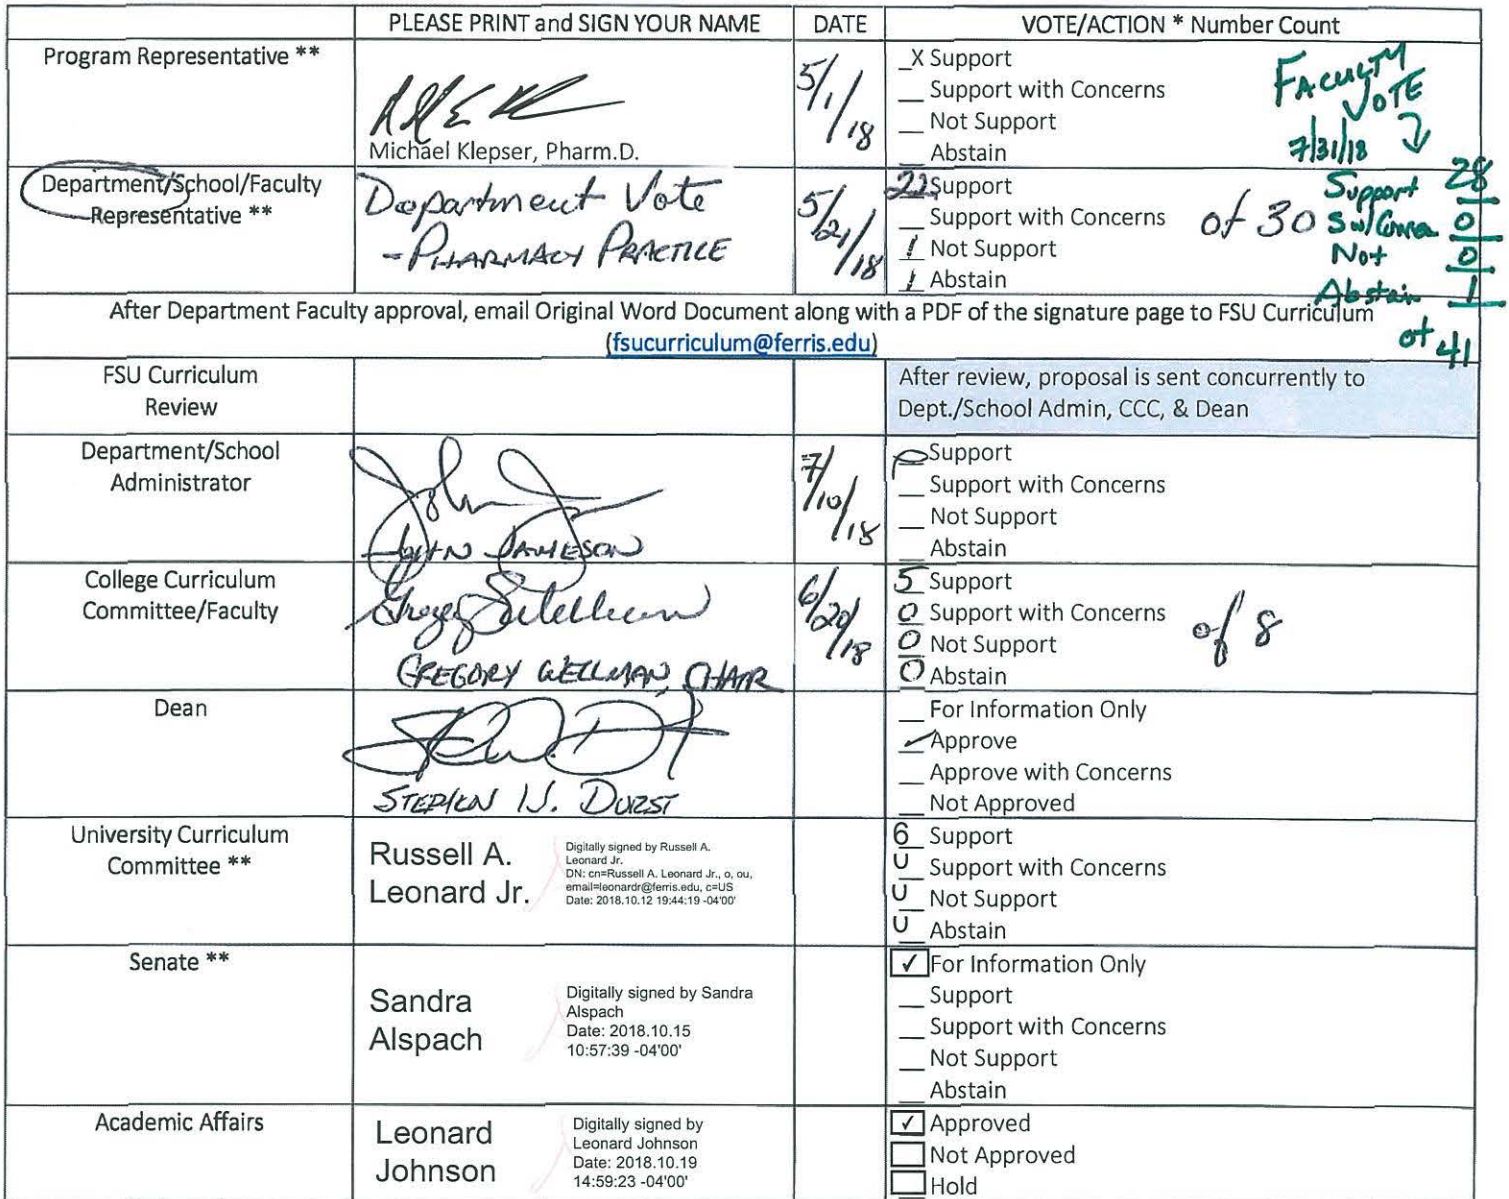 PLEASE PRINT and SIGN YOUR NAME DATE VOTE/ACTION * Number Count
Program Representative **
Michael Klepser, Pharm.D.
5/1/18
X Support
Support with Concerns
Not Support
Abstain
FACULTY
VOTE
7/31/18
Support 28
Sw/Concern 0
Not 0
Abstain 1
of 41
Department/School/Faculty
Representative **
Department Vote
- PHARMACY PRACTICE
5/21/18
22 Support
Support with Concerns
1 Not Support
1 Abstain
of 30
After Department Faculty approval, email Original Word Document along with a PDF of the signature page to FSU Curriculum
(fsucurriculum@ferris.edu)
FSU Curriculum
Review
After review, proposal is sent concurrently to
Dept./School Admin, CCC, & Dean
Department/School
Administrator
JOHN JAMESON
7/10/18
Support
Support with Concerns
Not Support
Abstain
College Curriculum
Committee/Faculty
GREGORY WELLMAN, CHAIR
6/20/18
5 Support
0 Support with Concerns
0 Not Support
0 Abstain
of 8
Dean
STEPHEN W. DURST
For Information Only
✓ Approve
Approve with Concerns
Not Approved
University Curriculum
Committee **
Russell A.
Leonard Jr.
Digitally signed by Russell A.
Leonard Jr.
DN: cn=Russell A. Leonard Jr., o, ou,
email=leonardr@ferris.edu, c=US
Date: 2018.10.12 19:44:19 -04'00'
6 Support
0 Support with Concerns
0 Not Support
0 Abstain
Senate **
Sandra
Alspach
Digitally signed by Sandra
Alspach
Date: 2018.10.15
10:57:39 -04'00'
✓ For Information Only
Support
Support with Concerns
Not Support
Abstain
Academic Affairs
Leonard
Johnson
Digitally signed by
Leonard Johnson
Date: 2018.10.19
14:59:23 -04'00'
✓ Approved
Not Approved
Hold